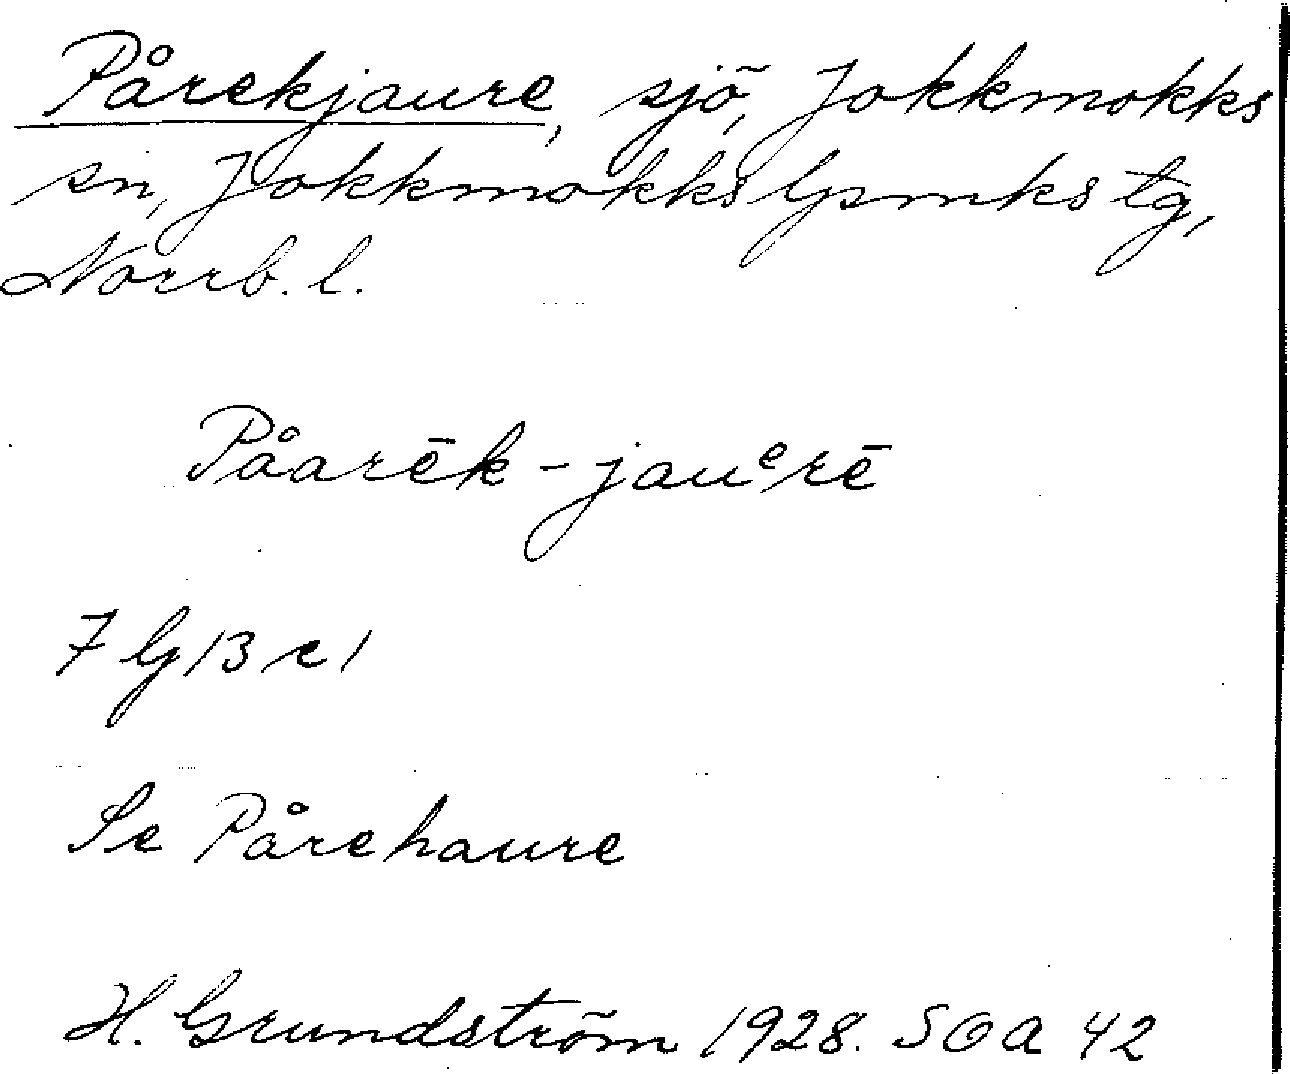 Pårekjaure, sjö, Jokkmokks
sn, Jokkmokks lpmks tg,
Norrb. l.
Påarēk-jauᵉrē
7 G 13 c 1
Se Pårehaure
H. Grundström 1928. SOA 42